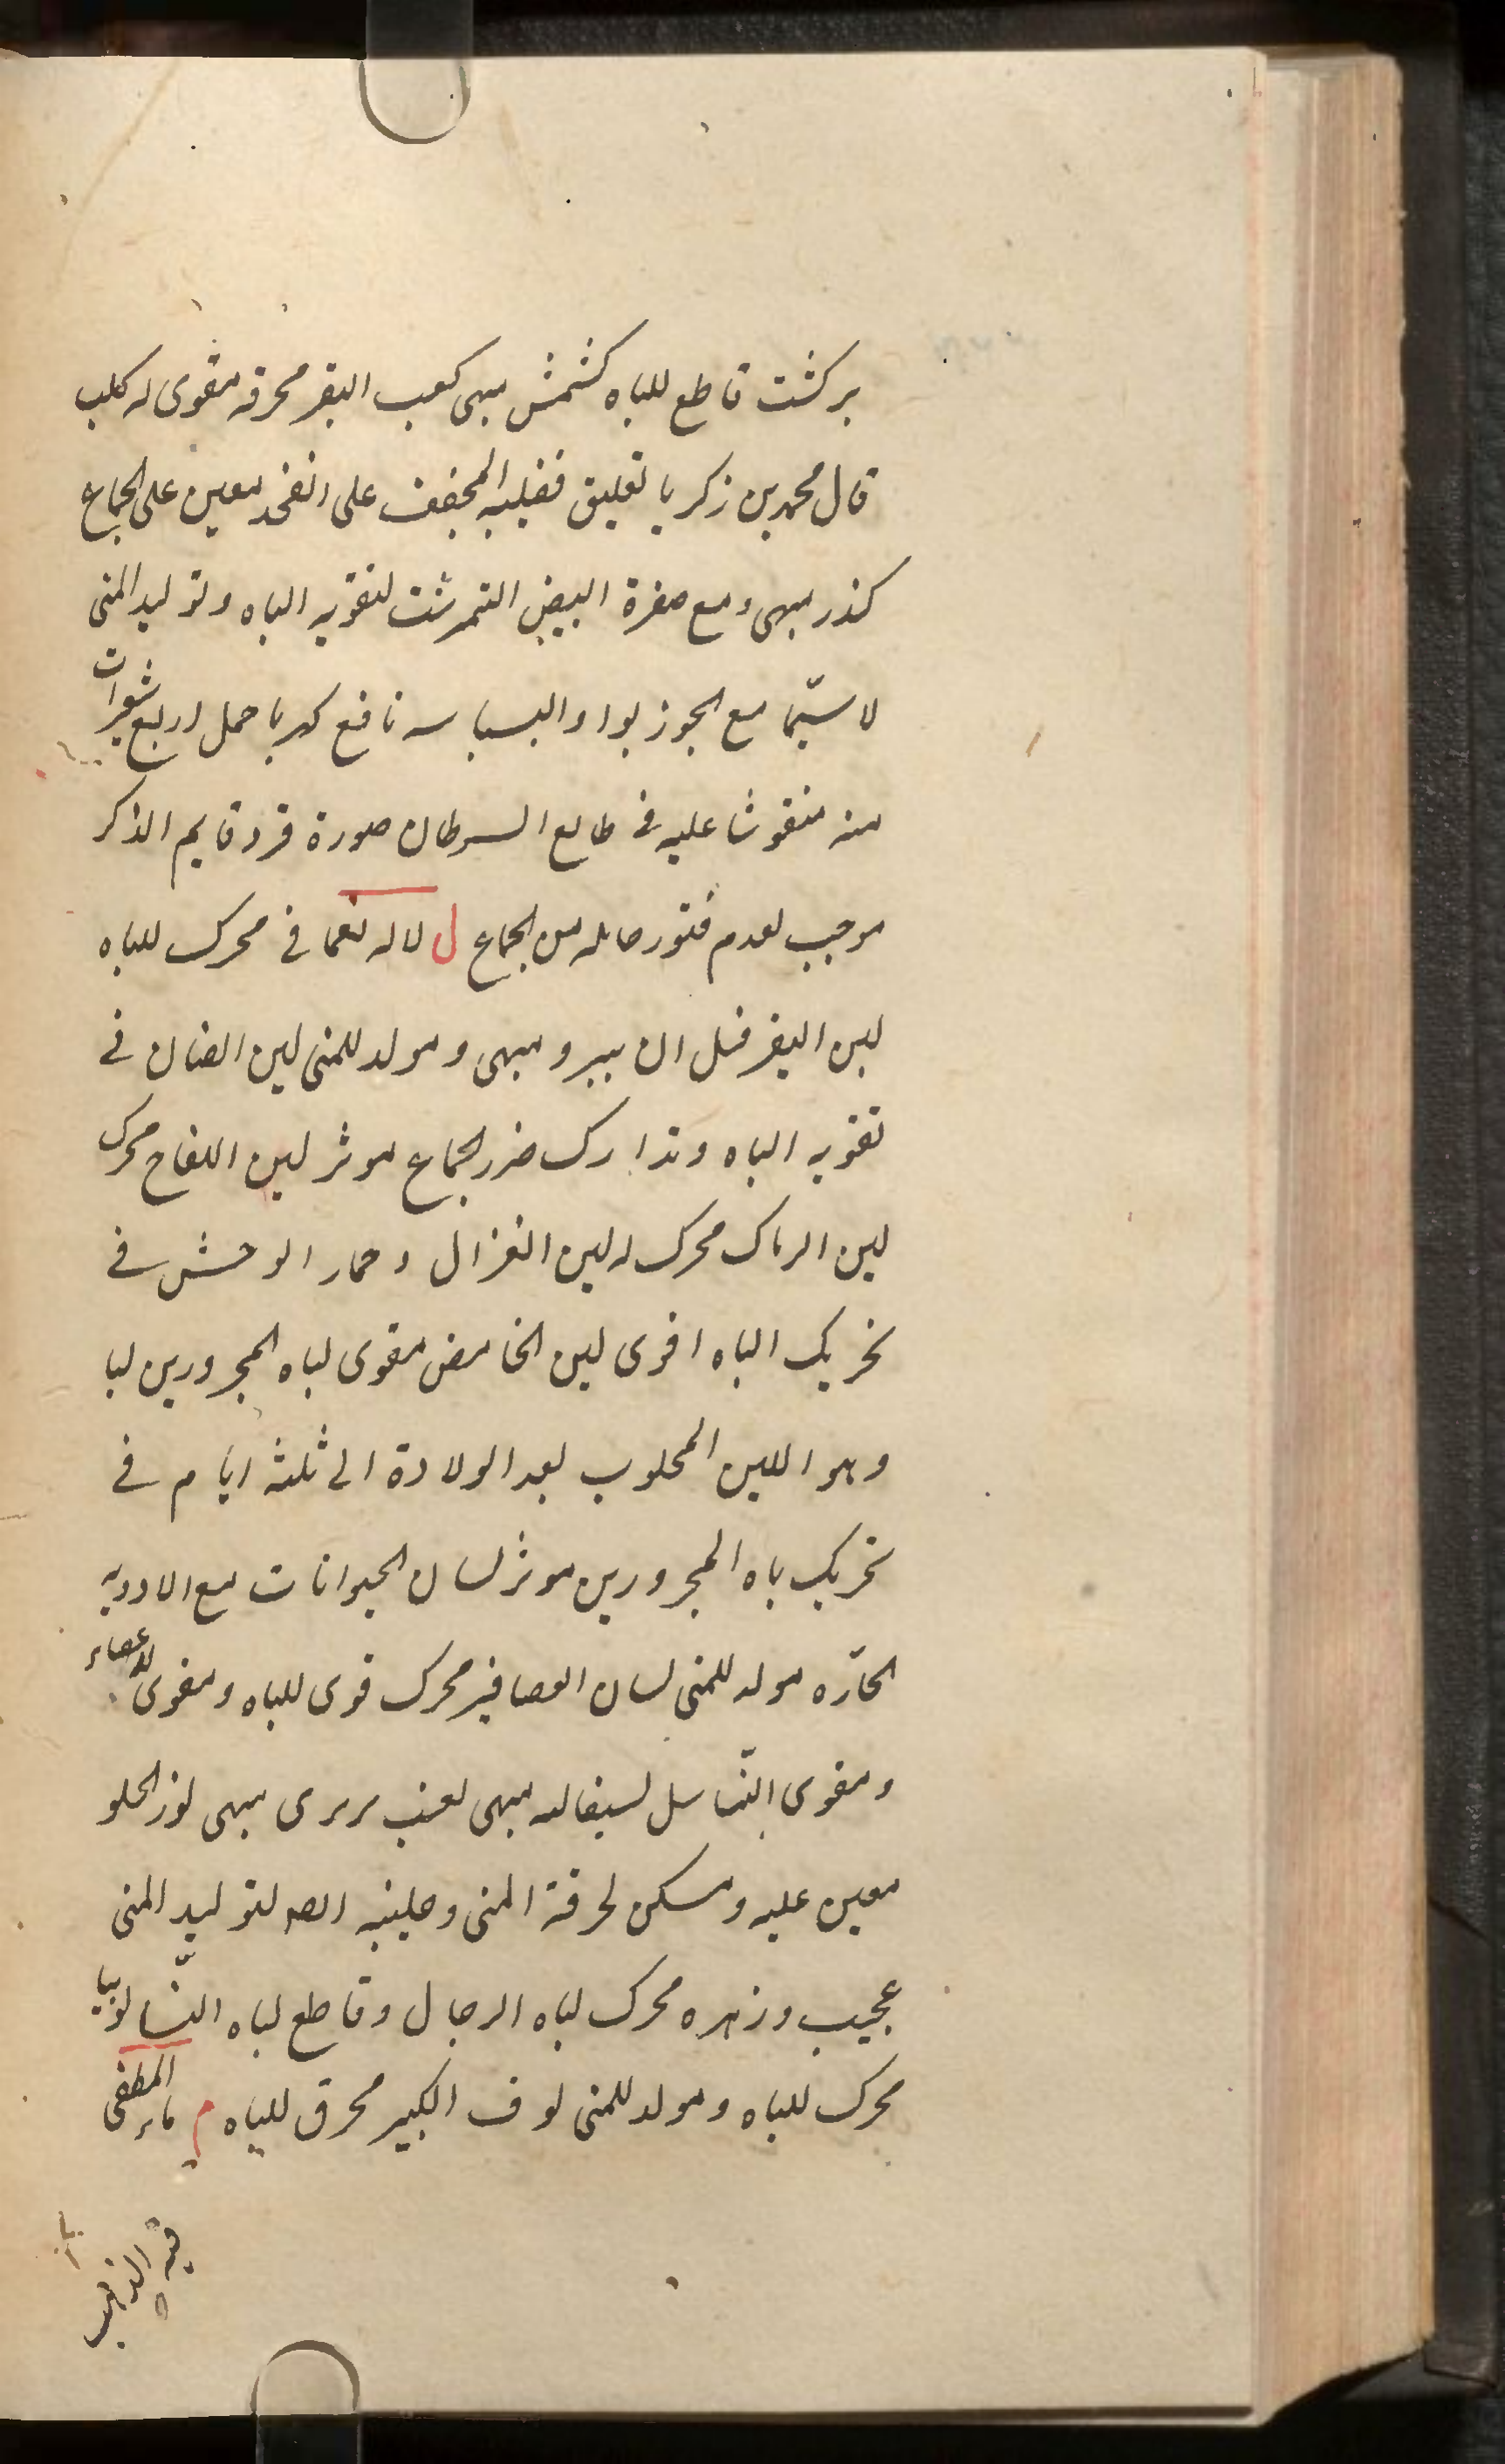 بركشت قاطع للباه كشمش مبهى كعب البقر محرقه مقوى له كلب
قال محمد بن زكريا تعليق قضيبه المجفف على الفخذ معين على الجماع
كندر مبهى ومع صفرة البيض النمرشت لتقويه الباه وتوليد المنى
لا سيّما مع الجوز بوا والبسباسه نافع كهربا حمل اربع شعيرات
منه منقوشا عليه فى طالع السرطان صورة قرد قايم الذكر
موجب لعدم فتور حامله من الجماع ل لاله نعمانى محرك للباه
لبن البقر قبل ان يبرد مبهى ومولد للمنى لبن الضان فى
تقويه الباه وتدارك ضرر الجماع موثر لبن اللقاح محرك
لبن الرماك محرك له لبن الغزال وحمار الوحش فى
تحريك الباه اقوى لبن الحامض مقوى لباه المحرورين لبا
وهو اللبن المحلوب بعد الولادة الى ثلثه ايّام فى
تحريك باه المحرورين موثر لسان الحيوانات مع الادويه
الحارّه مولد للمنى لسان العصافير محرك قوى للباه ومقوى للاعضاء
ومقوى التّناسل مبهى لعبت بربرى مبهى لوز الحلو
معين عليه ومسكن لحرقة المنى لتوليد المنى
عجيب وزهره محرك لباه الرجال وقاطع لباه النّسا لوبيا
محرك للباه ومولد للمنى لوف الكبير محرق للباه م ماء المطفى
فيه الذهب